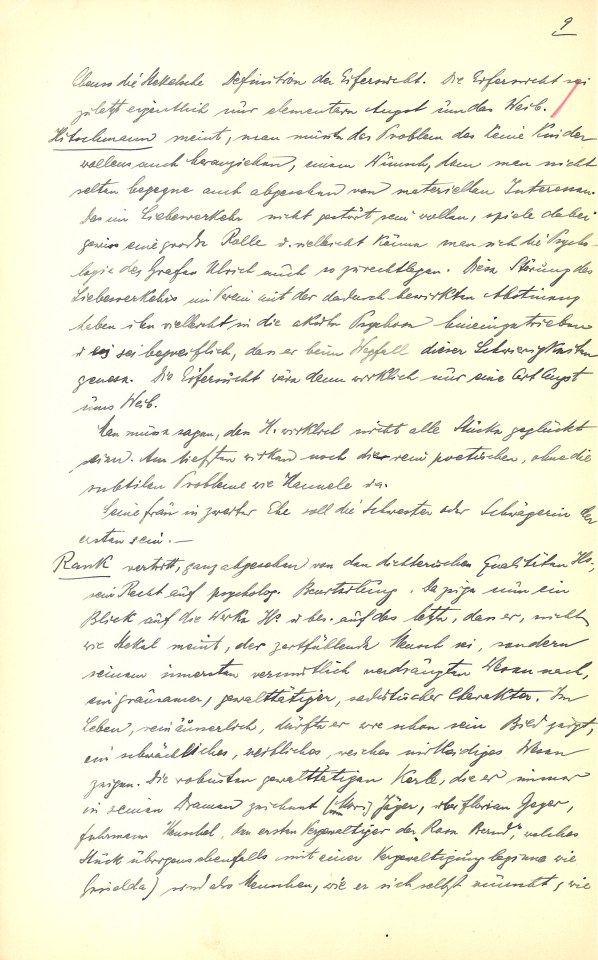 9
Ebenso die Stekelsche Definition der Eifersucht. Die Eifersucht sei
zuletzt eigentlich nur elementare Angst um das Weib.
Hitschmann meint, man müsste das Problem des Keine Kinder
wollens auch heranziehen, einem Wunsch, dem man nicht
selten begegne auch abgesehen von materiellen Interessen.
Das im Liebesverkehr nicht gestört sein wollen, spiele dabei
gewiss eine große Rolle u. vielleicht könne man sich die Psycho-
logie des Grafen Ulrich auch so zurechtlegen. Diese Störung des
Liebesverkehrs im Verein mit der dadurch bewirkten Abstinenz
haben ihn vielleicht in die akute Psychose hineingetrieben
u es sei begreiflich, dass er beim Wegfall dieser Schwierigkeiten
genese. Die Eifersucht wäre dann wirklich nur eine Art Angst
ums Weib.
Man müsse sagen, dass H. wirklich nicht alle Stücke geglückt
seien. Am tiefsten wirken noch die rein poetischen, ohne die
subtilen Probleme wie Hannele
Seine Frau in zweiter Ehe soll die Schwester oder Schwägerin der
ersten sein. —
Rank vertritt, ganz abgesehen von den dichterischen Qualitäten Hs.,
sein Recht auf psycholog. Beurteilung. Da zeige nun ein
Blick auf die Werke Hs u. bes. auf das letzte, dass er, nicht
wie Stekel meint, der zartfühlende Mensch sei, sondern
seinem innersten vermutlich verdrängten Wesen nach,
ein grausamer, gewalttätiger, sadistischer Charakter. Im
Leben, rein äusserlich, dürfte er wie schon sein Bild zeigt,
ein schwächliches, weibliches, weiches mitleidiges Wesen
zeigen. Die robusten gewalttätigen Kerle, die er immer
in seinen Dramen zeichnet Jäger, Florian Geyer,
Fuhrmann Henschel, den ersten Vergewaltiger der Rose Bernd, welches
Stück übrigens ebenfalls mit einer Vergewaltigung beginne wie
Griselda) sind also Menschen, wie er sich selbst wünscht, wie